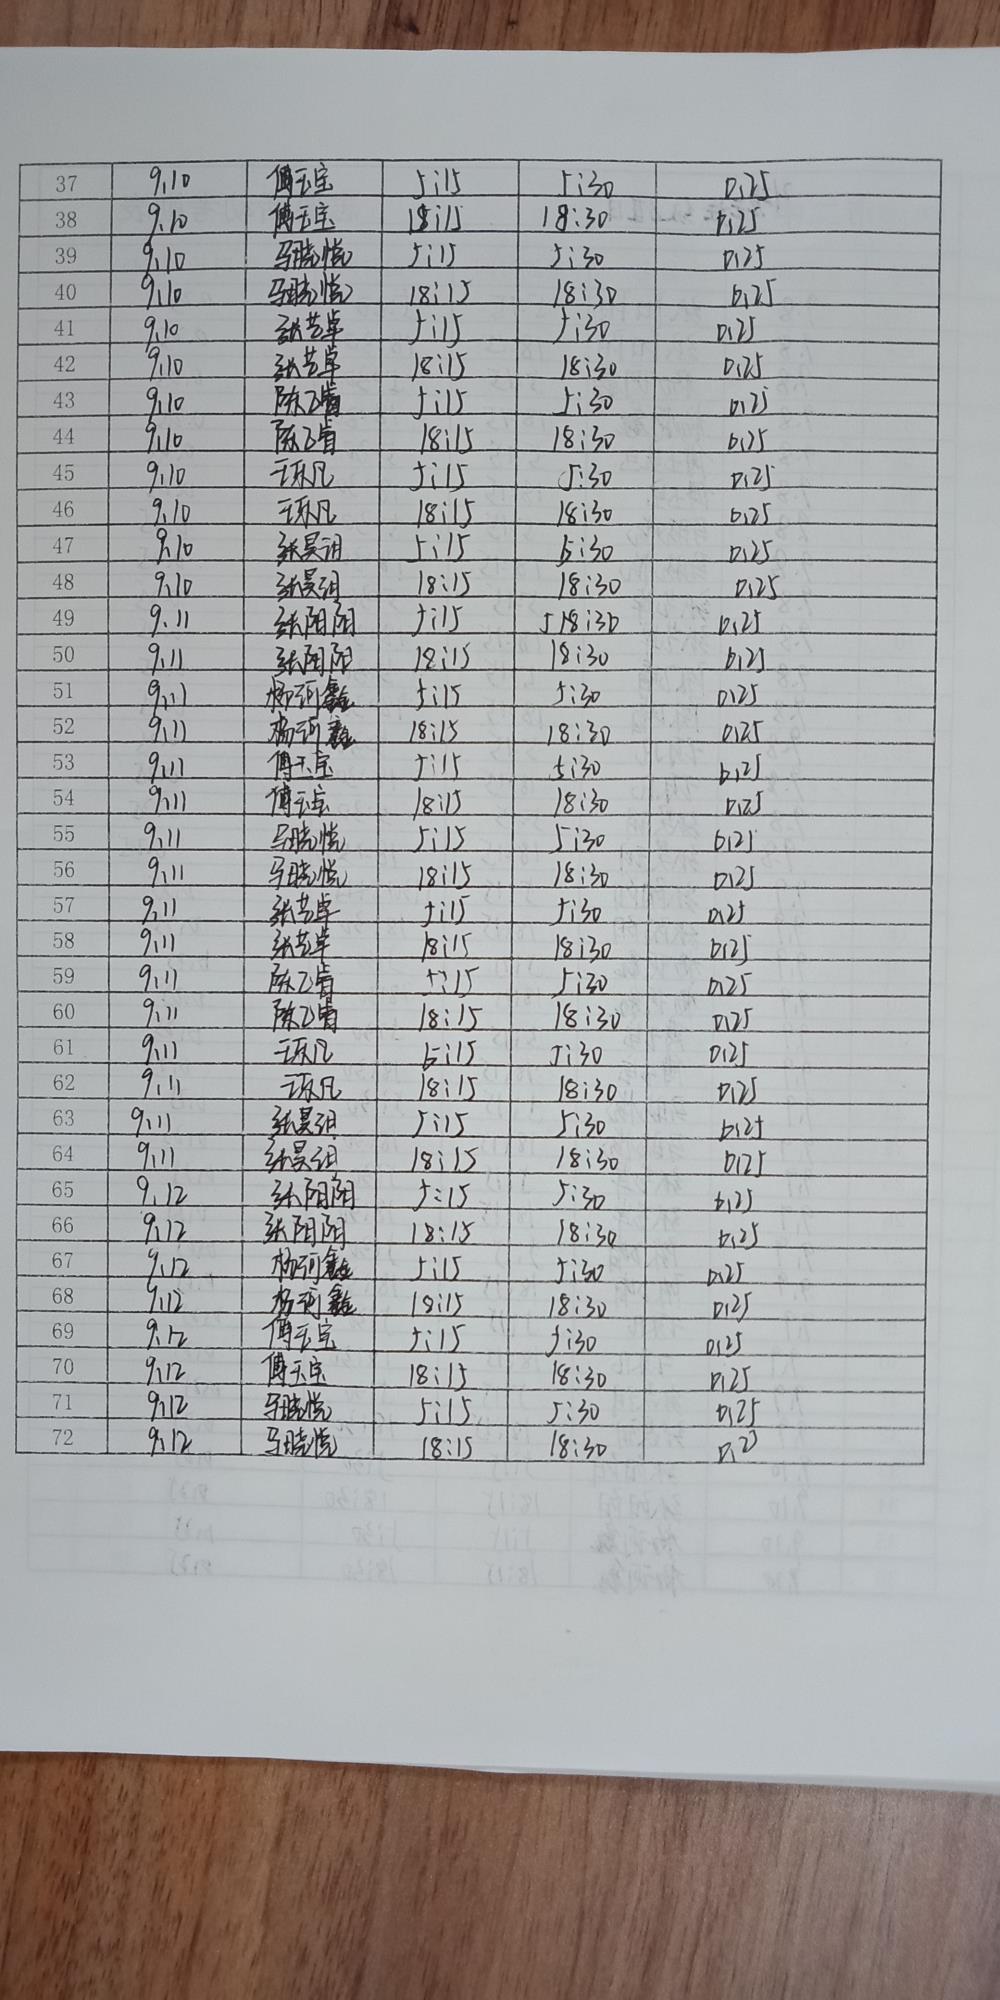 37 9.10 傅玉宝 5:15 5:30 0.25
38 9.10 傅玉宝 18:15 18:30 0.25
39 9.10 马晓悦 5:15 5:30 0.25
40 9.10 马晓悦 18:15 18:30 0.25
41 9.10 张艺卓 5:15 5:30 0.25
42 9.10 张艺卓 18:15 18:30 0.25
43 9.10 陈飞睿 5:15 5:30 0.25
44 9.10 陈飞睿 18:15 18:30 0.25
45 9.10 5:15 5:30 0.25
46 9.10 18:15 18:30 0.25
47 9.10 5:15 5:30 0.25
48 9.10 18:15 18:30 0.25
49 9.11 张阳阳 5:15 518:30 0.25
50 9.11 张阳阳 18:15 18:30 0.25
51 9.11 杨珂鑫 5:15 5:30 0.25
52 9.11 杨珂鑫 18:15 18:30 0.25
53 9.11 傅玉宝 5:15 5:30 0.25
54 9.11 傅玉宝 18:15 18:30 0.25
55 9.11 马晓悦 5:15 5:30 0.25
56 9.11 马晓悦 18:15 18:30 0.25
57 9.11 张艺卓 5:15 5:30 0.25
58 9.11 张艺卓 18:15 18:30 0.25
59 9.11 陈飞睿 5:15 5:30 0.25
60 9.11 陈飞睿 18:15 18:30 0.25
61 9.11 5:15 5:30 0.25
62 9.11 18:15 18:30 0.25
63 9.11 5:15 5:30 0.25
64 9.11 18:15 18:30 0.25
65 9.12 张阳阳 5:15 5:30 0.25
66 9.12 张阳阳 18:15 18:30 0.25
67 9.12 杨珂鑫 5:15 5:30 0.25
68 9.12 杨珂鑫 18:15 18:30 0.25
69 9.12 傅玉宝 5:15 5:30 0.25
70 9.12 傅玉宝 18:15 18:30 0.25
71 9.12 马晓悦 5:15 5:30 0.25
72 9.12 马晓悦 18:15 18:30 0.25